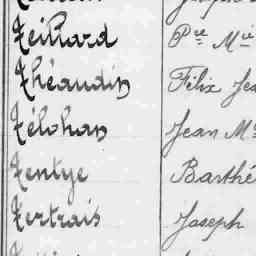 Teillard Pre Mie
Théaudin Félix Jea
Télohan Jean Ma
Tentye Barthé
Tertrais Joseph